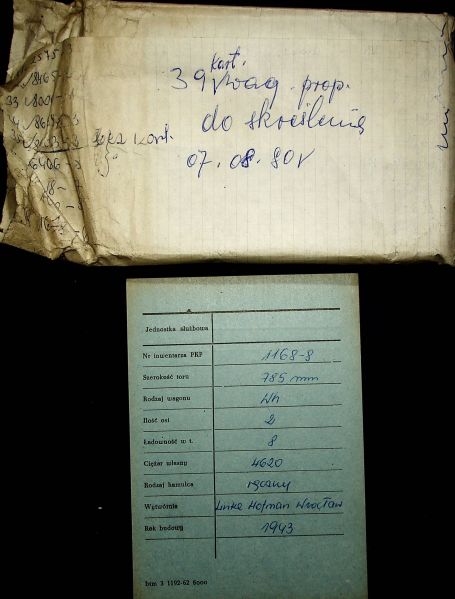 kart.
39 wag. prop.
do skreślenia
07. 08. 80r
bez kart.
Jednostka służbowa
Nr inwentarza PKP 1168-8
Szerokość toru 785 mm
Rodzaj wagonu Wh
Ilość osi 2
Ładowność w t. 8
Ciężar własny 4620
Rodzaj hamulca ręczny
Wytwórnia Linke Hofman Wrocław
Rok budowy 1943
btm 3 1192-62 6000